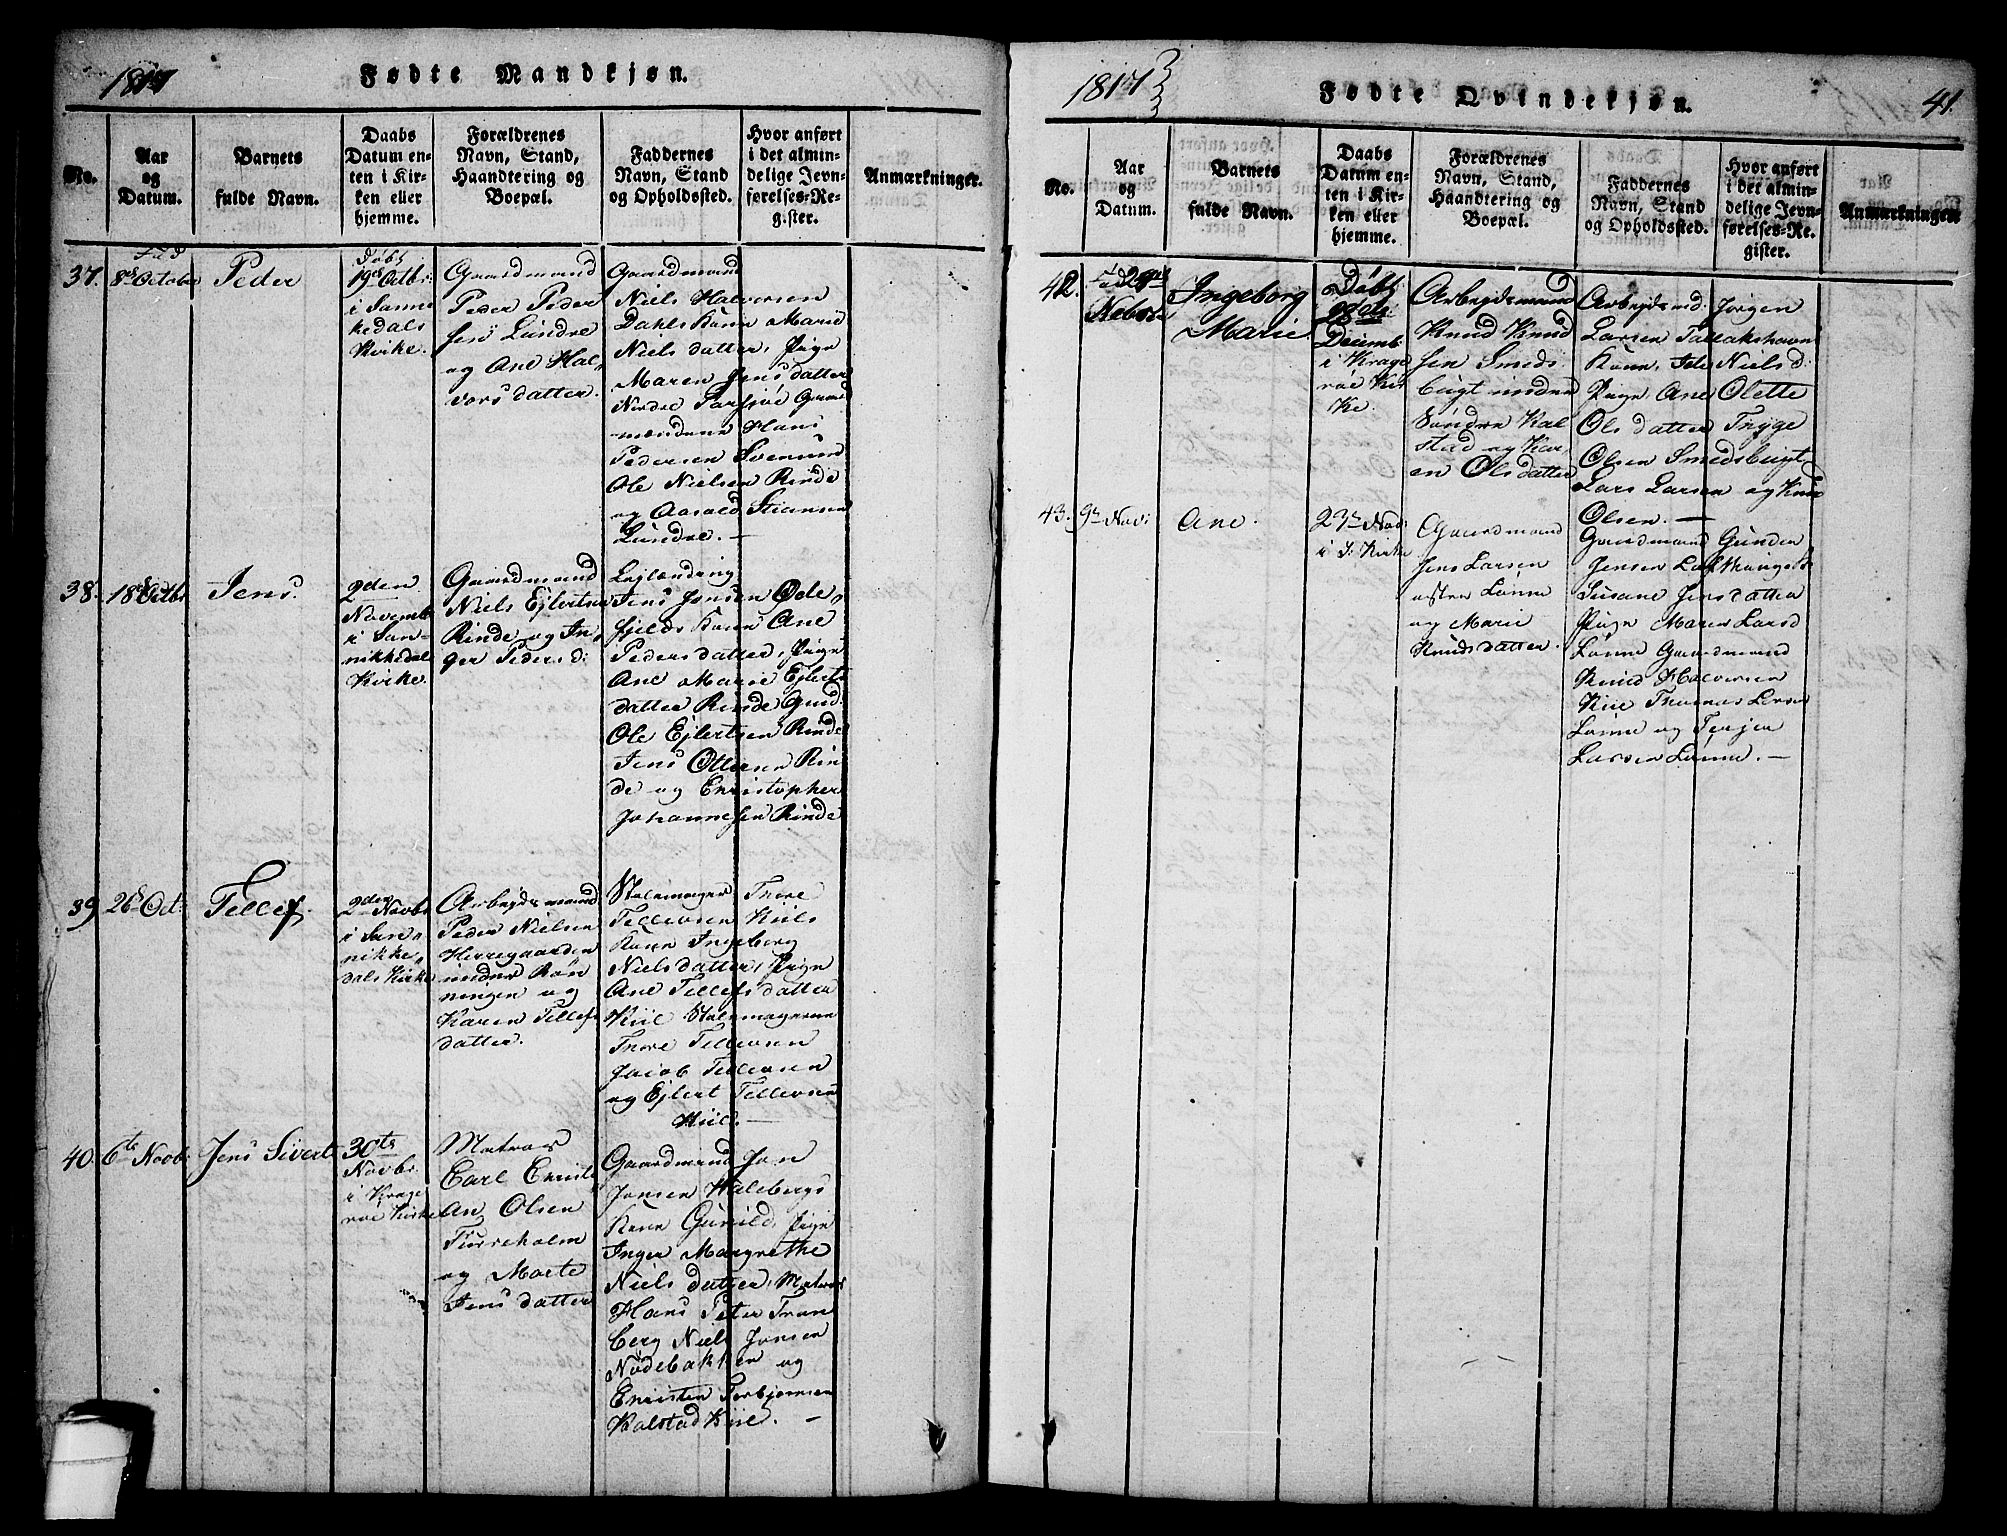 1817
Fødte Mandkjøn.
No.
Aar
og
Datum.
Barnets
fulde Navn.
Daabs
Datum en-
ten i Kir-
ken eller
hjemme.
Forældrenes
Navn, Stand,
Haandtering og
Boepæl.
Faddernes
Navn, Stand
og Opholdssted.
Hvor anført
i det almin-
delige Jevn-
førelses-Re-
gister.
Anmærkninger.
37.
Fød
8de October
Peder
Døbt
19de Octbr:
i Sanne
kedals
Kirke.
Gaardmand
Peder Peder
sen Lundre
og Ane Hal,
vorsdatter.
Gaardmand
Niels Halvorsen
Dahls Kone Marie
Nielsdatter, Pige
Maren Jensdatter
Nordre
mændene Hans
Pedersen
Ole Nielsen Rinde
og Aasold Stiansen
Lundre. —
38.
18de Octbr
Jens
2den
Novemb
i San-
nikkedals
Kirke.
Gaardmand
Niels Ejlertsen
Rinde og In,
ger Peders d:
Lejlænding
Jens Jonsen Øde,
fjelds Kone Ane
Pedersdatter, Pige
Ane Marie Ejlerts
datter Rinde Gmd:
Ole Ejlertsen Rinde
Jens Ottersen Rin
de og Christopher
Johannesen Rinde
39
26de Oct:
Tellef.
2den Novbr
i San,
nikke,
dals Kirke
Arbejdsmand
Peder Nielsen
Herregaarden
under Røn
ningen og
Karen Tellefs
datter.
Stolemager Thore
Tellevsen Kiils
Kone Ingeborg
Nielsdatter, Pige
Ane Tellefsdatter
Kiil Stolemagerne
Thore Tellevsen
Jacob Tellevsen
og Ejlert Tellevsen
Kiil. —
40.
6te Novbr:
Jens Sivert
30te
Novbr.
i Krage
röe Kirke
Matros
Carl Christi
an Olsen
Furreholm
og Marte
Jensdatter
Gaardmand Jon
Jonsen Halebergs
Kone Gunild, Pige
Inger Margrethe
Nielsdatter, Matros
Hans Peter Tran
berg Niels Jonsen
Nødebakken og
Christen Torbjørnsen
Kalstad Kiil. —
1817
Fødte Qvindekjøn.
41.
No.
Aar
og
Datum.
Barnets
fulde Navn.
Daabs
Datum en-
ten i Kir-
ken eller
hjemme.
Forældrenes
Navn, Stand,
Haandtering og
Boepæl.
Faddernes
Navn, Stand
og Opholdssted.
Hvor anført
i det almin-
delige Jevn-
førelses-Re-
gister.
Anmærkninger
42.
Ingeborg
Marie.
Døbt
Decemb
i Krage
röe Kir
ke.
Arbejdsmand
Knud Knud
sen Smeds
bugt under
Søndre Kal
stad og Kar,
en Olsdatter
Arbejdsmd. Jørgen
Larsen Tallakshavn
Kone, Nielsd:
Pige Ane Olette
Olsdatter Trÿge
Olsen Smedsbugt
Lars Larsen og Knud
Olsen. —
43.
9de Nov:
Ane.
23de Nov:
i S: Kirke
Gaardmand
Jens Larsen
østre Lønne
og Marie
Knudsdatter.
Gaardmand Gunder
Jensen
Susane Jensdatter
Pige Maren Larsd
Lønne Gaardmand
Knud Halvorsen
Kiil Thomas Larsen
Lønne og Terjer
Larsen Lønne. —